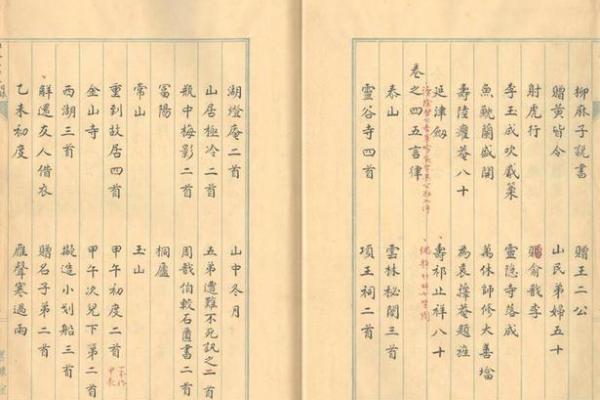 柳麻子說書　贈王二公
贈黃皆令　山民弟婦五十
射虎行　俞戩李
李玉成吹觱篥　靈隱寺落成
魚魫蘭盛開　萬休師修大善墖
壽陸癯菴八十　為袁籜菴題旌
延津劔　壽祁止祥八十
卷之四五言律
泰山　雲林秘閣三首
靈谷寺四首　項王祠二首
湖燈庵二首　山中冬月
山居極冷二首　五弟遭難不死訊之二首
瓶中梅影二首　周戩伯較石匱書二首
富陽　桐廬
常山　玉山
重到故居四首　甲午初度二首
金山寺　甲午次兒下第二首
西湖三首　擬造小划船三首
還友人借衣　贈名子第二首
乙未初度　雁聲寒過雨